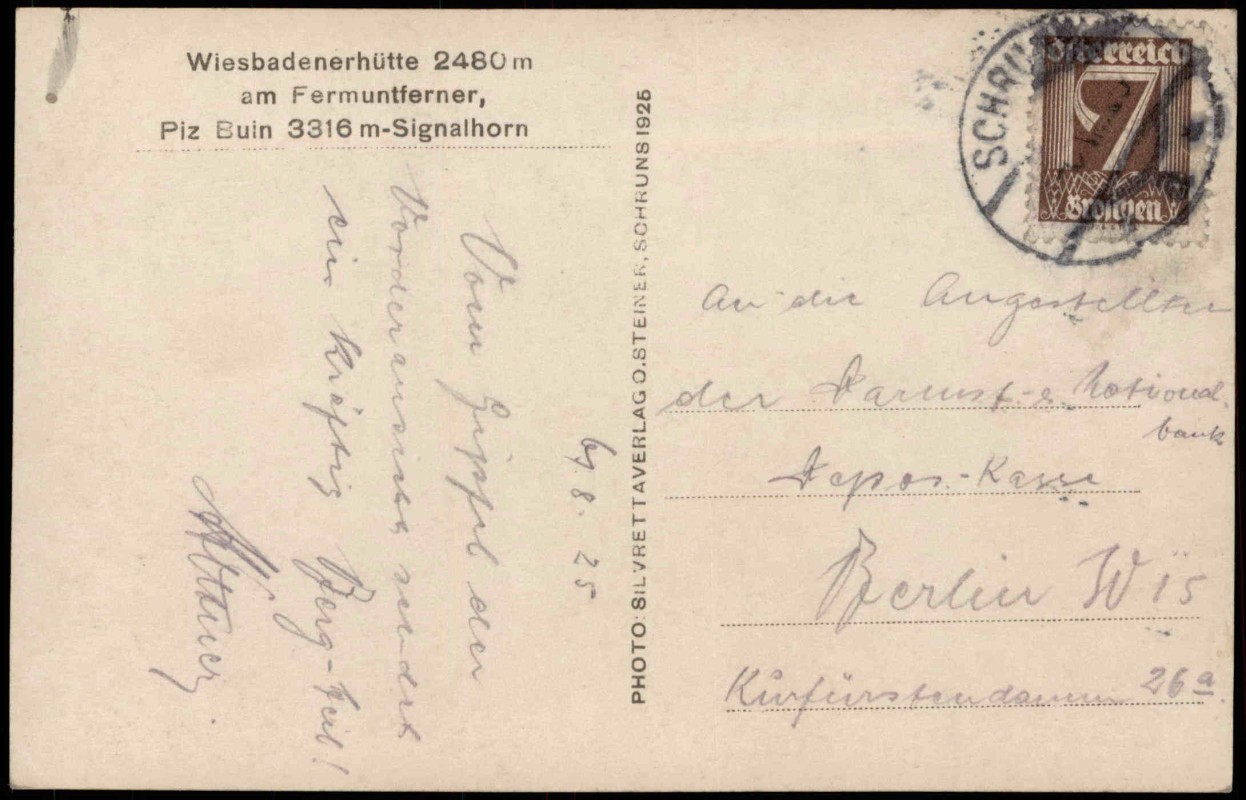 Wiesbadenerhütte 2480 m
am Fermuntferner,
Piz Buin 3316 m-Signalhorn
PHOTO: SILVRETTAVERLAG O. STEINER, SCHRUNS 1925
8. 25
Vom Gipfel der
sendet
ein kräftig Berg-Heil!
Österreich
7
Groschen
SCHRU
An die Angestellten
der Darmst- & National
bank
Depos.-Kasse
Berlin W 15
Kurfürstendamm 26a